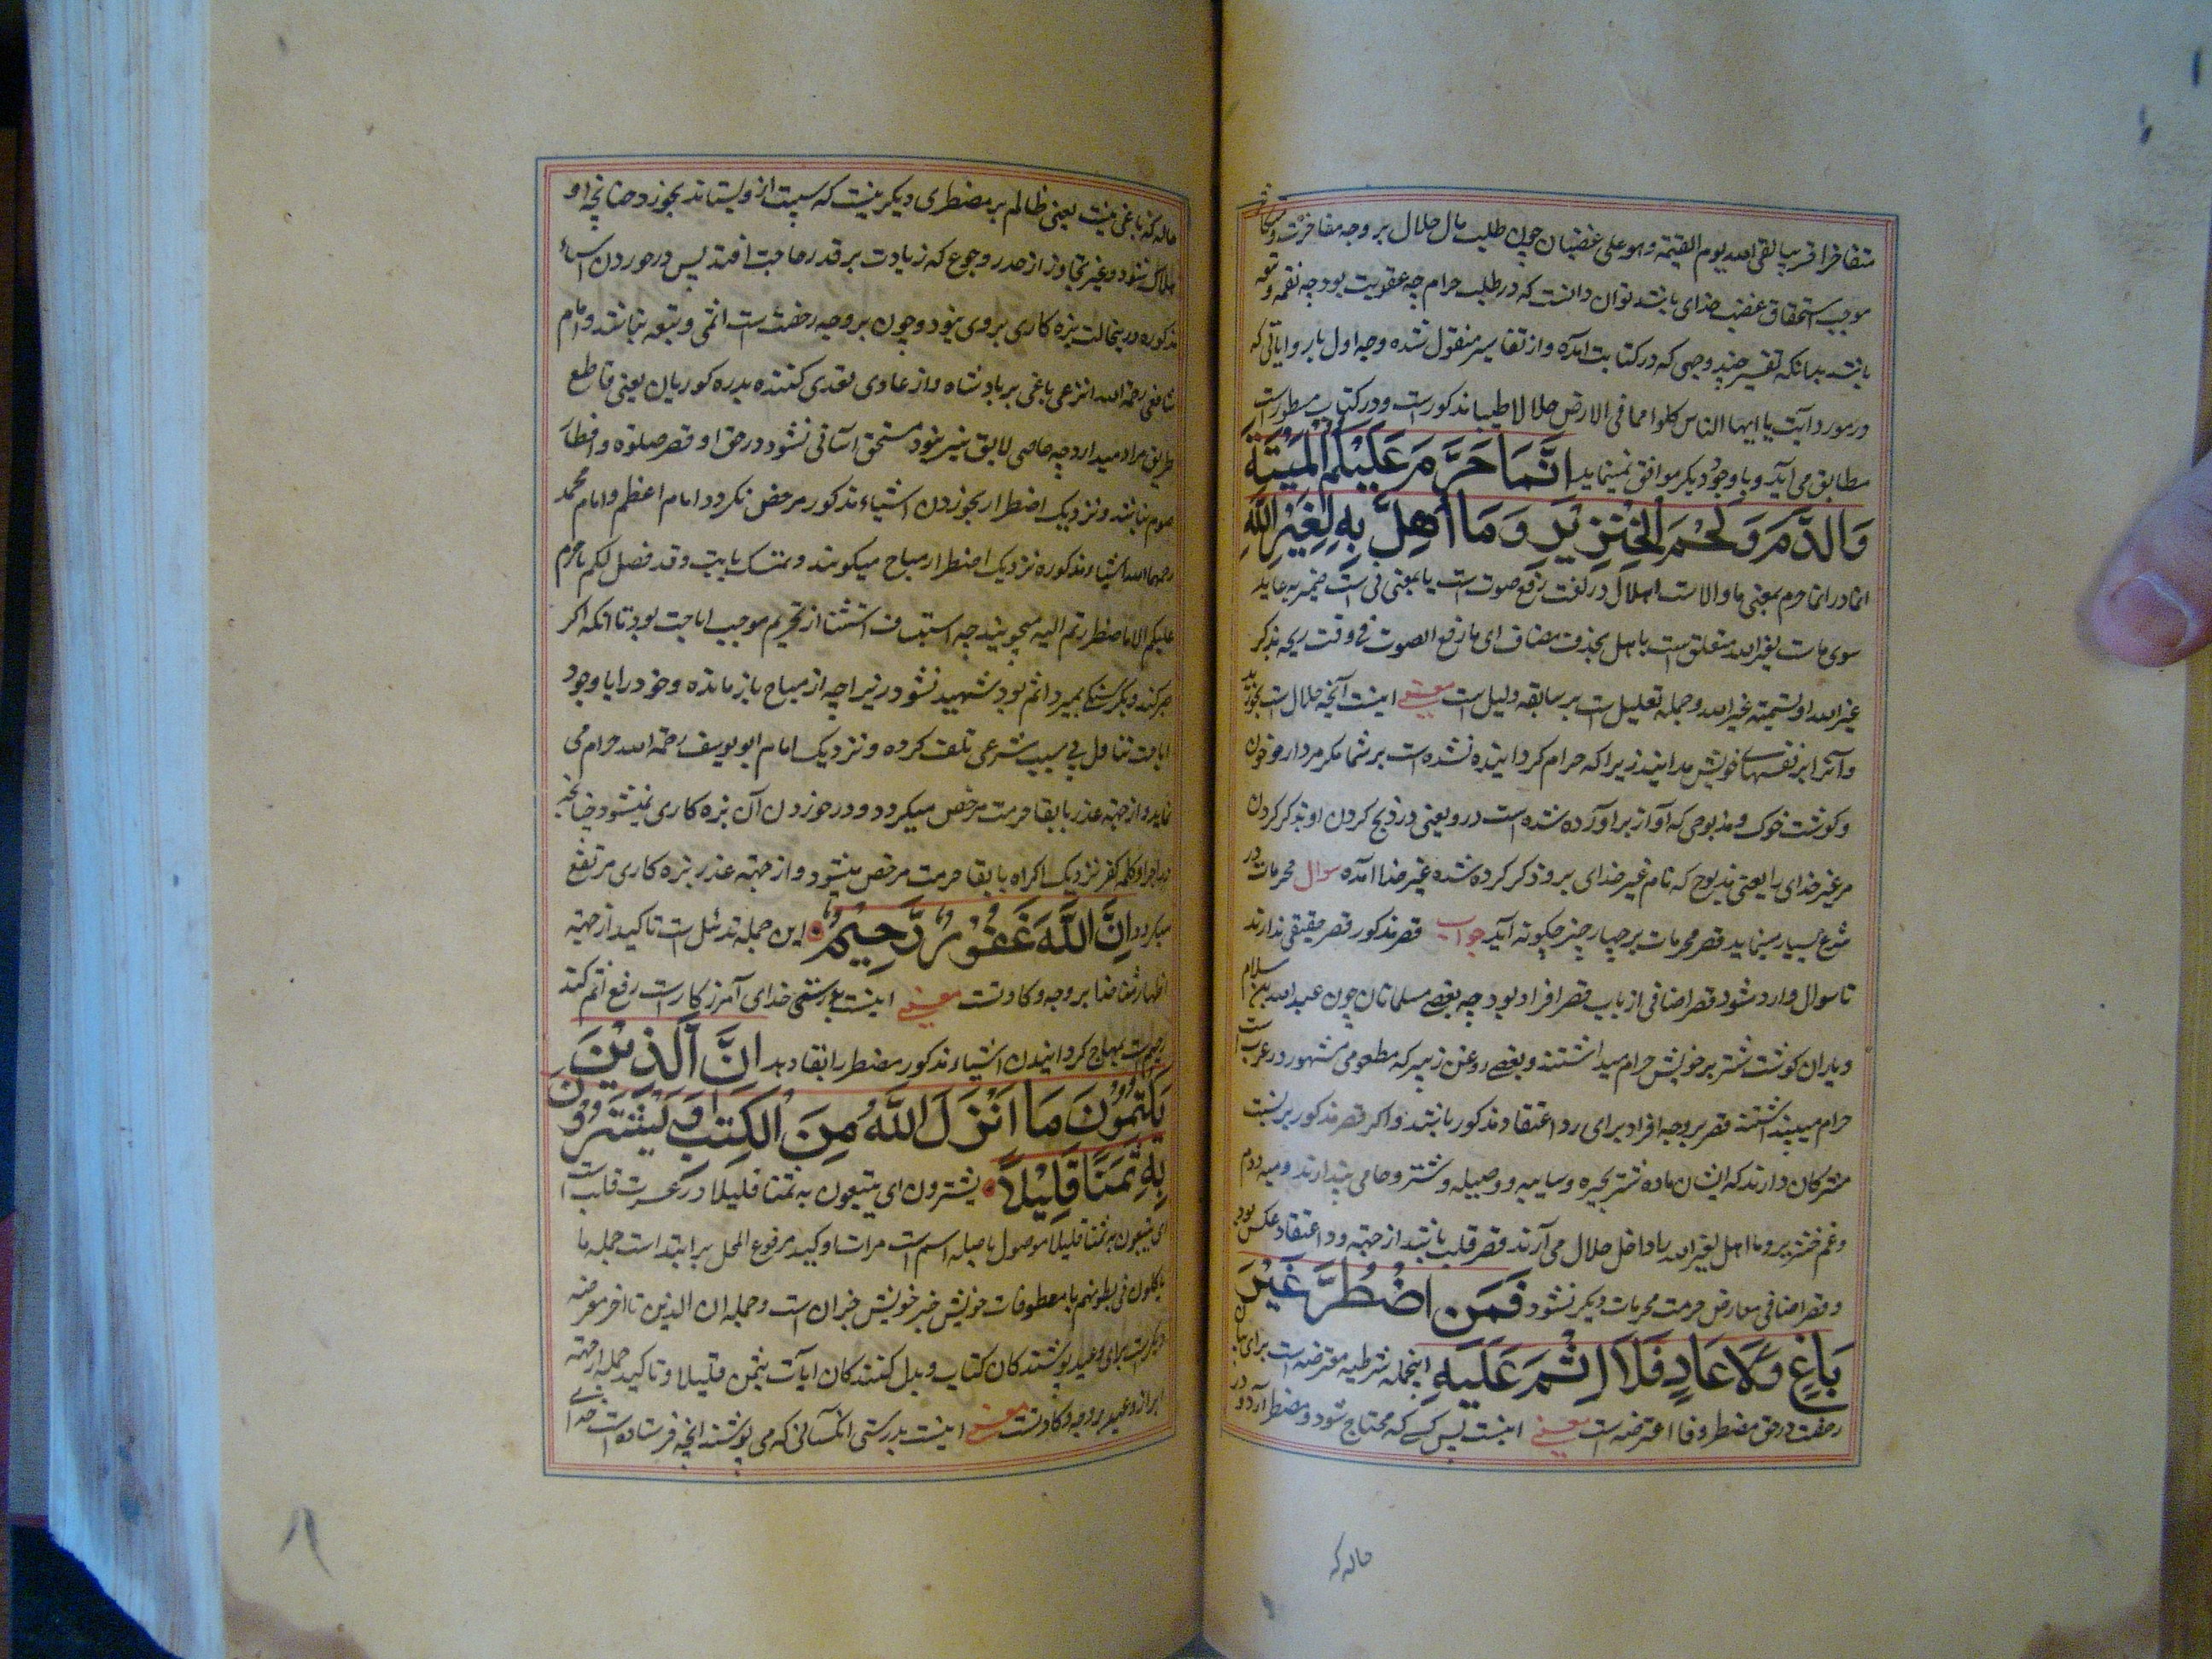 متفاخرا فریبا لقی الله یوم القیمة وهو علی غضبان چون طلب مال حلال بر وجه مفاخرت
موجب استحقاق غضب خدای باشد توان دانست که در طلب حرام چه عقوبت بود چه نقمه و
باشد بدانکه تفسیر چند وجهی که در کتابت آمده و از تفاسیر منقول شده وجه اول بار وایاتی که
در مورد آیت یا ایها الناس کلوا مما فی الارض حلالا طیبا مذکورست و در کتاب مسطورست
مطابق می آید و با وجوه دیگر موافق نمینماید اِنَّمَا حَرَّمَ عَلَیْکُمُ الْمَیْتَةَ
وَالدَّمَ وَلَحْمَ الْخِنْزِیْرِ وَمَا اُهِلَّ بِهٖ لِغَیْرِ اللّٰهِ
انما در انما حرم بمعنی ما والاست اهلال در لغت رفع صوت است با بمعنی فی است ضمیر به عاید
سوی ماست لغیر الله متعلق است باهل بحذف مضاف ای ما رفع الصوت فی وقت ذبحه بذکر
غیر الله او بتسمیه غیر الله و جمله تعلیل است بر سابقه دلیل است معنی اینست آنچه حلال است بخورید
و آنرا بر نفسهای خویش مدانید زیرا که حرام کردانیده نشده است بر شما مکر مردار و خون
و کوشت خوک و مذبوحی که آواز برآورده شده است درو یعنی در ذبح کردن او بذکر کردن
مر غیر خدای را یعنی مذبوح که نام غیر خدای برو ذکر کرده شده غیر خدا آمده سوال محرمات در
شرع بسیار مینماید قصر محرمات بر چهار چیز چکونه آید جواب قصر مذکور قصر حقیقی ندارند
تا سوال وارد شود قصر اضافی از باب قصر افراد بود چه بعضی مسلمانان چون عبد الله بن سلام
و یاران کوشت شتر بر خویش حرام میداشتند و بعضی روغن زیر که مطعومی مشهور در عرب است
حرام میپنداشتند قصر بر وجه افراد برای رد اعتقاد مذکور باشد و اکر قصر مذکور بر نسبت
مشرکان دارند که ایشان ماده شتر بحیره و سایبه و وصیله و شتر و حامی میپندارند و میته و دم
و غم خنزیر و ما اهل لغیر الله را داخل حلال می آرند قصر قلب باشد از جهة رد اعتقاد عکس بود
و قصر اضافی معارض حرمت محرمات دیگر نشود فَمَنِ اضْطُرَّ غَیْرَ
بَاغٍ وَّلَا عَادٍ فَلَا اِثْمَ عَلَیْهِ اینجمله شرطیه معترضه است برای بیان
رخصت در حق مضطر و فا اعتراضه است معنی اینست پس کسی که محتاج شود و مضطر آرد و در
حاله که
حاله که باغی نیست یعنی ظالم بر مضطری دیگر نیست که سبب از و بستاند بخورد چنانچه او
هلاک شود و غیر تجاوز از حد رد جوع که زیادت بر قدر حاجت افتد پس در خوردن اشیاء
مذکوره درینحالت بزه کاری بر وی نبود و چون بر وجه رخصت است اثمی و تبعه نباشد و امام
شافعی رحمة الله از عی باغی بر بادشاه و از عادی تعدی کننده بدره کوریان یعنی قاطع
طریق مراد میدارد چه عاصی لایق تیسیر نبود مستحق آسانی نشود در حق او قصر صلوة و افطار
صوم نباشد و نزدیک اضطرار بخوردن اشیاء مذکور مرخص نکردد امام اعظم و امام محمد
رحمهما الله اشیاء مذکوره نزدیک اضطرار مباح میکویند و تمسک بایت و قد فصل لکم ما حرم
علیکم الا ما اضطررتم الیه میجویند چه استثنا از تحریم موجب اباحت بود تا انکه اکر
صبر کند و بکرسنکی بمیرد اثم بود شهید نشود زیرا چه از مباح باز مانده و خود را با وجود
اباحت تناول بی سبب شرعی تلف کرده و نزدیک امام ابو یوسف رحمة الله حرام می
نماید و از جهة عذر با بقاء حرمت مرخص میکردد و در خوردن آن بزه کاری نمیشود چنانچه
در اجراء کلمه کفر نزدیک اکراه با بقا حرمت مرخص میشود و از جهة عذر بزه کاری مرتفع
میکردد اِنَّ اللّٰهَ غَفُوْرٌ رَّحِیْمٌ این جمله تدئیل است تاکید از جهة
اظهار شفاخدا بر وجه وکادتست معنی اینست بدرستی خدای آمرزکارست رفع اثم کند
رحیمست بمباح کردانیدن اشیاء مذکور مضطر را بقا دهد اِنَّ الَّذِیْنَ
یَکْتُمُوْنَ مَا اَنْزَلَ اللّٰهُ مِنَ الْکِتٰبِ وَیَشْتَرُوْنَ
بِهٖ ثَمَنًا قَلِیْلًا یشترون ای یبتیعون به ثمنا قلیلا در عبارت قلب است
ای یبیعون به ثمنا قلیلا موصول با صله اسم است مرات را و کید مرفوع المحل بر ابتداست جمله ما
یاکلون فی بطونهم با معطوفات خویش خبر خویش خبر ان است و جمله ان الذین تا اخر معرضه
دیگرست برای وعید پوشندکان کتاب و بدل کنندکان ایات بثمن قلیل و تاکید جمله از جهة
ابراز وعید بر وجه وکادتست معنی اینست بدرستی آنکسانی که می پوشند آنچه فرستاده است خدای